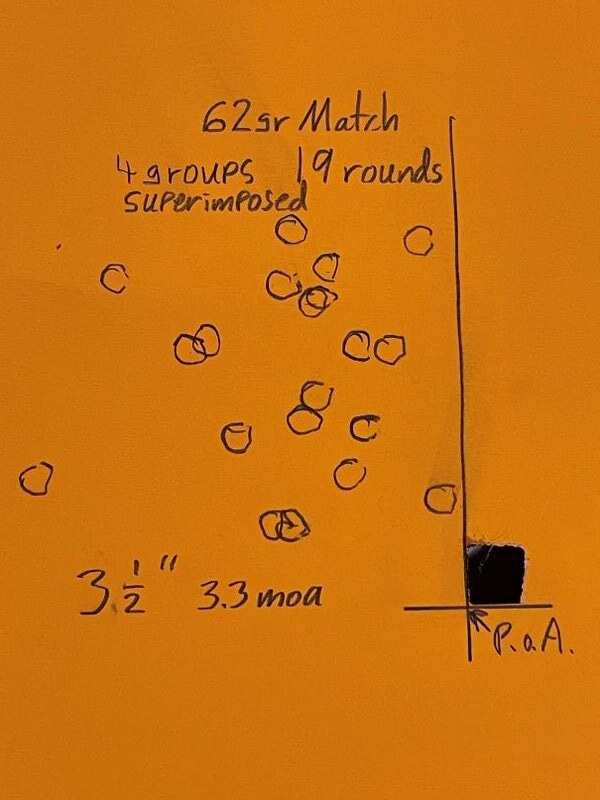 62gr Match
4 groups 19 rounds
superimposed
3 1/2" 3.3 moa
P.o.A.